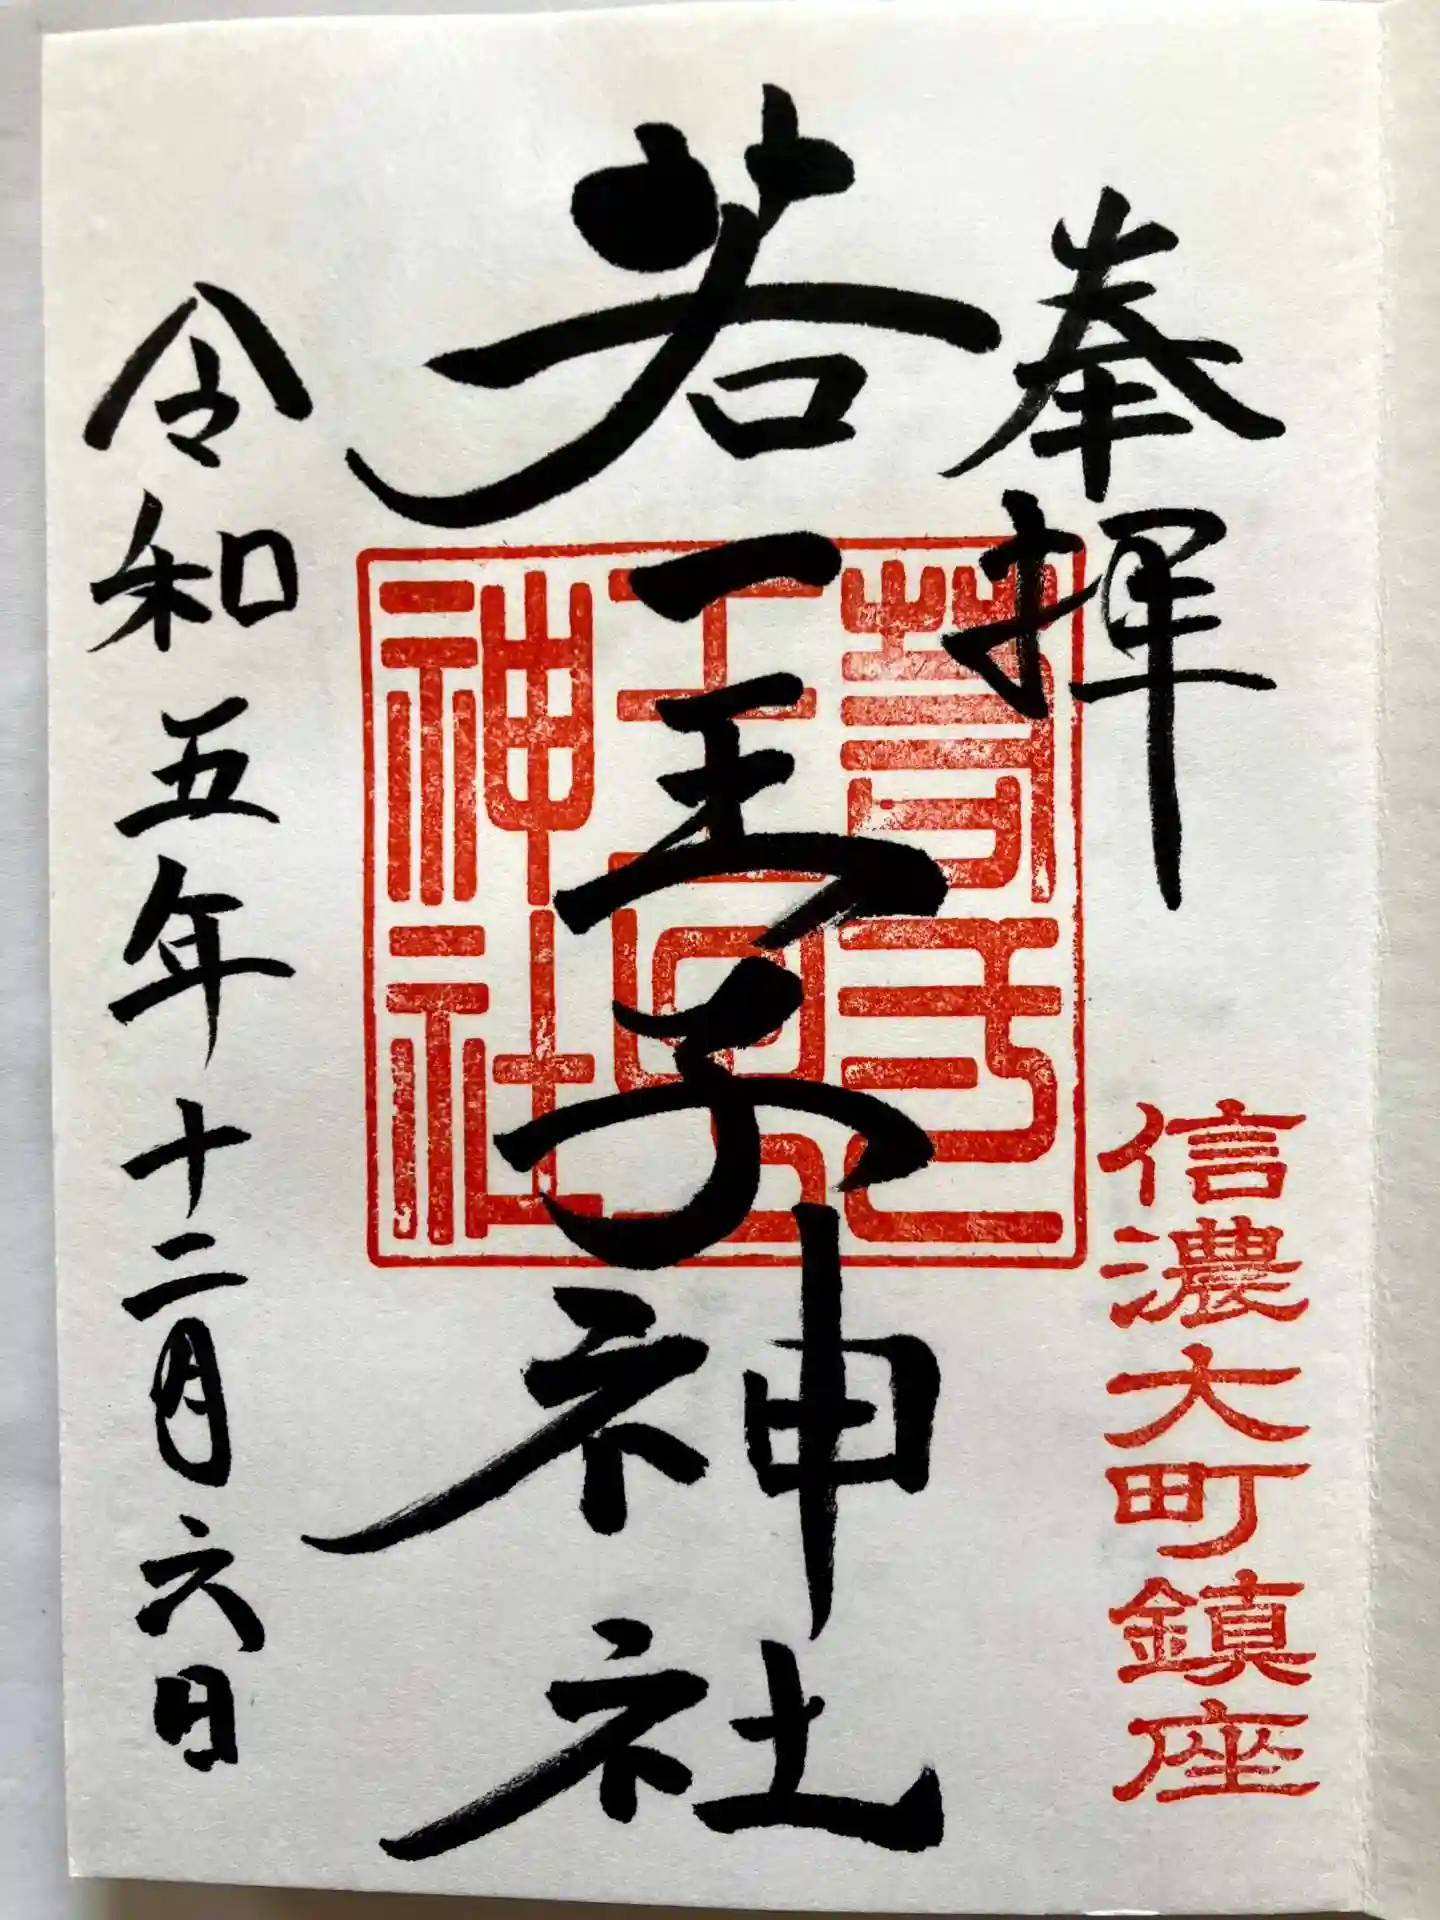 奉拝
信濃大町鎮座
若一王子神社
令和五年十二月六日
若
王
神社